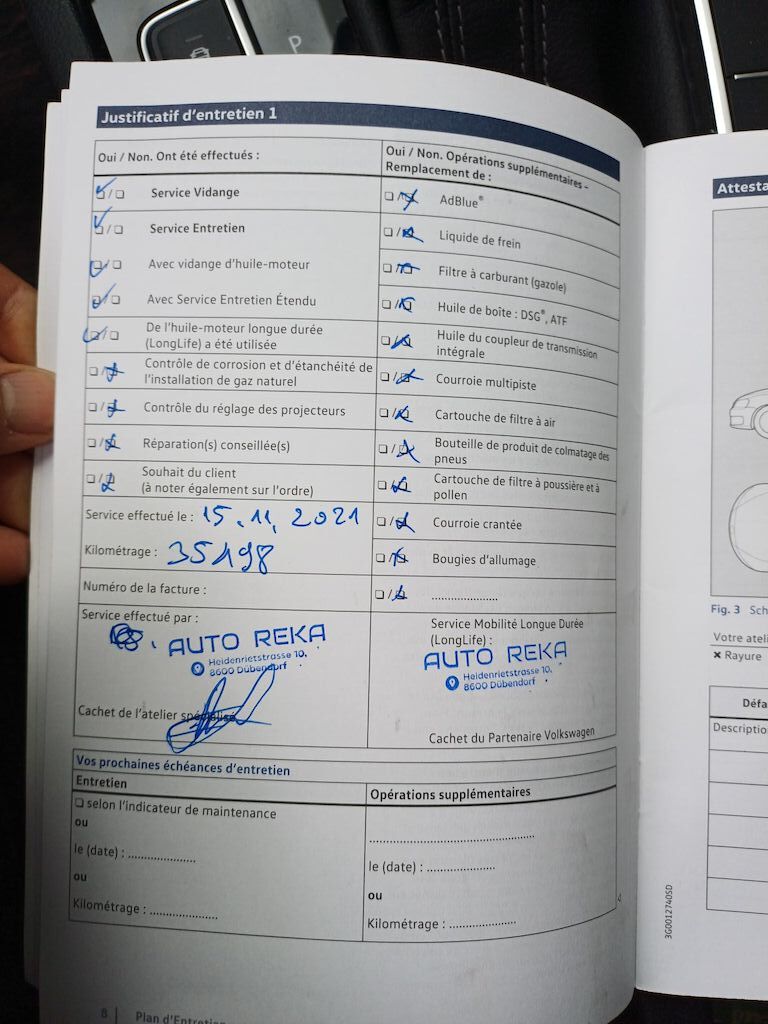 P
Justificatif d'entretien 1
Oui / Non. Ont été effectués :
Service Vidange
Service Entretien
Avec vidange d'huile-moteur
Avec Service Entretien Étendu
De l'huile-moteur longue durée
(LongLife) a été utilisée
Contrôle de corrosion et d'étanchéité de
l'installation de gaz naturel
Contrôle du réglage des projecteurs
Réparation(s) conseillée(s)
Souhait du client
(à noter également sur l'ordre)
Service effectué le : 15.11.2021
Kilométrage : 35198
Numéro de la facture :
Service effectué par :
AUTO REKA
Heidenrietstrasse 10,
8600 Dübendorf
Cachet de l'atelier spécialisé
Oui / Non. Opérations supplémentaires –
Remplacement de :
AdBlue®
Liquide de frein
Filtre à carburant (gazole)
Huile de boîte : DSG®, ATF
Huile du coupleur de transmission
intégrale
Courroie multipiste
Cartouche de filtre à air
Bouteille de produit de colmatage des
pneus
Cartouche de filtre à poussière et à
pollen
Courroie crantée
Bougies d'allumage
....................
Service Mobilité Longue Durée
(LongLife) :
AUTO REKA
Heidenrietstrasse 10.
8600 Dübendorf
Cachet du Partenaire Volkswagen
Vos prochaines échéances d'entretien
Entretien
selon l'indicateur de maintenance
ou
le (date) : ....................
ou
Kilométrage : ....................
Opérations supplémentaires
..................................................
le (date) : ....................
ou
Kilométrage : ....................
8 | Plan d'Entretien
3G0012740SD
Attesta
Fig. 3 Sch
Votre ateli
✖ Rayure
Défa
Descriptio